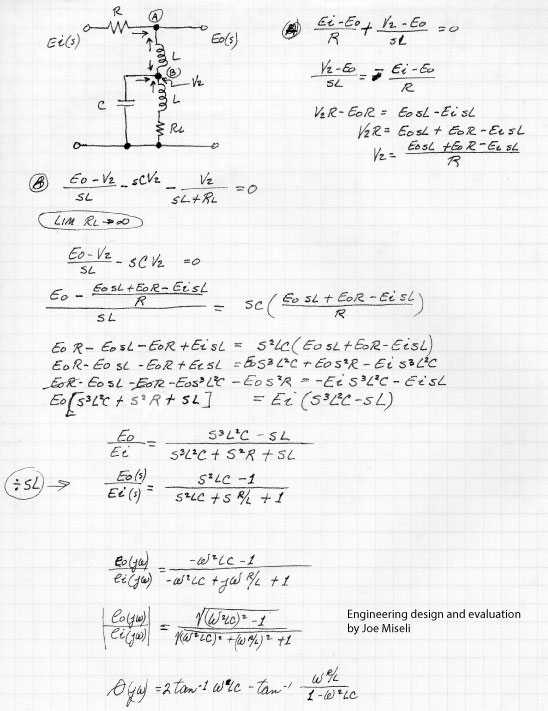 R
Ⓐ
Ei(s)
Eo(s)
L
Ⓑ
V2
L
C
RL
Ⓐ (Ei-Eo)/R + (V2-Eo)/sL = 0
(V2-Eo)/sL = - (Ei-Eo)/R
V2R-EoR = EosL-EisL
V2R = EosL + EoR-EisL
V2 = (EosL + EoR-EisL)/R
Ⓑ (Eo-V2)/SL - sCV2 - V2/(SL+RL) = 0
LIM RL→∞
(Eo-V2)/SL - sCV2 = 0
(Eo - (EosL+EoR-EisL)/R)/SL = SC((EosL + EoR-EisL)/R)
EoR-EosL-EoR+EisL = S²LC(EosL+EoR-EisL)
EoR-EosL-EoR+EisL = EoS³L²C+EoS²R-EiS³L²C
EoR-EosL-EoR-EoS³L²C-EoS²R = -EiS³L²C-EisL
Eo[S³L²C + S²R + SL] = Ei(S³L²C-SL)
Eo/Ei = (S³L²C-SL)/(S³L²C+S²R+SL)
÷SL → Eo(s)/Ei(s) = (S²LC-1)/(S²LC+S R/L+1)
eo(jω)/ei(jω) = (-ω²LC-1)/(-ω²LC+jω R/L+1)
|eo(jω)/ei(jω)| = √((ω²LC)²-1)/√((ω²LC)²+(ωR/L)²+1)
Θ(jω) = 2 tan-1 ω²LC - tan-1 (ωR/L)/(1-ω²LC)
Engineering design and evaluation
by Joe Miseli